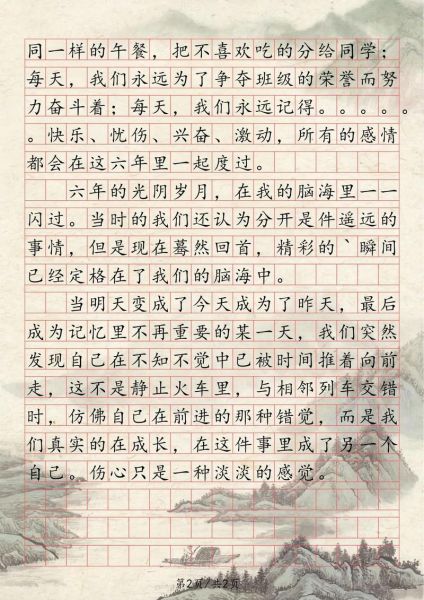 同一样的午餐，把不喜欢吃的分给同学；
每天，我们永远为了争夺班级的荣誉而努
力奋斗着；每天，我们永远记得。。。。。
。快乐、忧伤、兴奋、激动，所有的感情
都会在这六年里一起度过。
六年的光阴岁月，在我的脑海里一一
闪过。当时的我们还认为分开是件遥远的
事情，但是现在蓦然回首，精彩的`瞬间
已经定格在了我们的脑海中。
当明天变成了今天成为了昨天，最后
成为记忆里不再重要的某一天，我们突然
发现自己在不知不觉中已被时间推着向前
走，这不是静止火车里，与相邻列车交错
时，仿佛自己在前进的那种错觉，而是我
们真实的在成长，在这件事里成了另一个
自己。伤心只是一种淡淡的感觉。
第2页/共2页